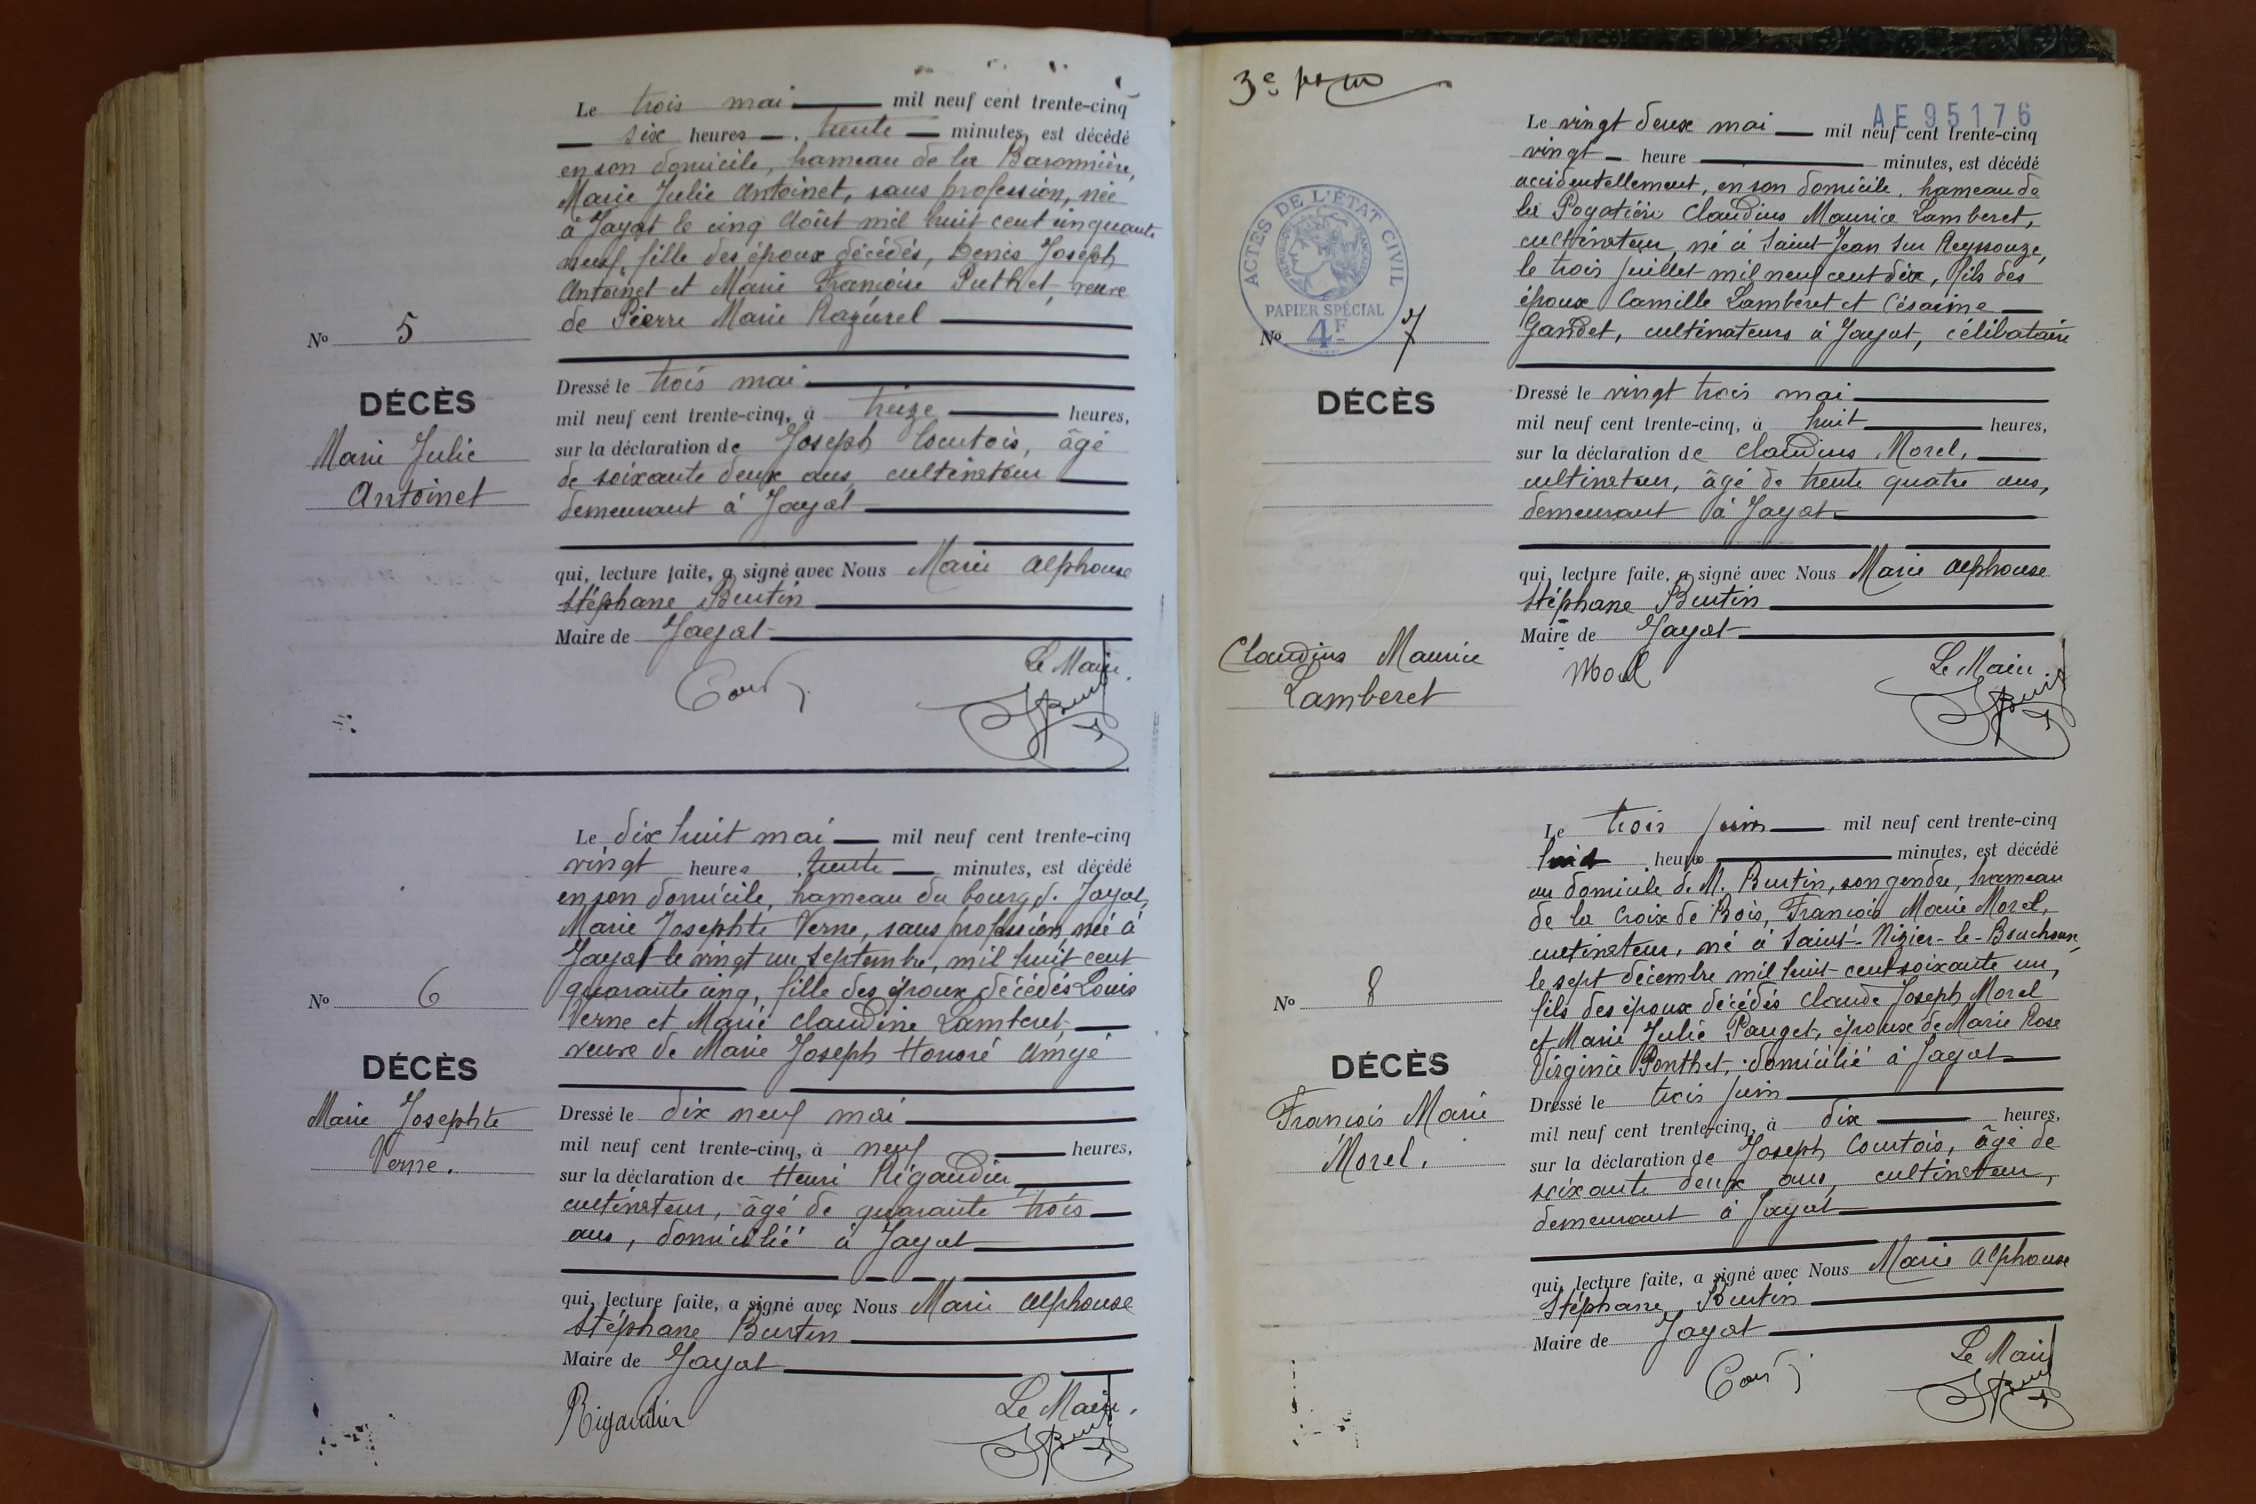 Le trois mai mil neuf cent trente-cinq
six heures trente minutes, est décédé
en son domicile, hameau de la Baronnière,
Marie Julie Antoinet, sans profession, née
à Jayat le cinq Août mil huit cent cinquante
neuf, fille des époux décédés, Denis Joseph
Antoinet et Marie Françoise Puthet, veuve
de Pierre Marie Razurel
No 5
DÉCÈS
Marie Julie
Antoinet
Dressé le trois mai
mil neuf cent trente-cinq, à treize heures,
sur la déclaration de Joseph Courtois, âgé
de soixante deux ans, cultivateur
demeurant à Jayat
qui, lecture faite, a signé avec Nous Marie Alphonse
Stéphane Burtin
Maire de Jayat
Le Maire,
Le dix huit mai mil neuf cent trente-cinq
vingt heures trente minutes, est décédé
en son domicile, hameau du bourg de Jayat,
Marie Josephte Verne, sans profession, née à
Jayat le vingt un septembre, mil huit cent
quarante cinq, fille des époux décédés Louis
Verne et Marie Claudine Lamberet,
veuve de Marie Joseph Honoré Amyé
No 6
DÉCÈS
Marie Josephte
Verne.
Dressé le dix neuf mai
mil neuf cent trente-cinq, à neuf heures,
sur la déclaration de Henri Rigaudier,
cultivateur, âgé de quarante trois
ans, domicilié à Jayat
qui, lecture faite, a signé avec Nous Marie Alphonse
Stéphane Burtin
Maire de Jayat
Rigaudier
Le Maire,
3e
AE95176
Le vingt deux mai mil neuf cent trente-cinq
vingt heure minutes, est décédé
accidentellement, en son domicile, hameau de
la Pogatière Claudius Maurice Lamberet,
cultivateur, né à Saint-Jean sur Reyssouze,
le trois juillet mil neuf cent dix, fils des
époux Camille Lamberet et Césarine
Gandet, cultivateurs à Jayat, célibataire
ACTES DE L'ÉTAT CIVIL
PAPIER SPÉCIAL
4F
No 7
DÉCÈS
Claudius Maurice
Lamberet
Dressé le vingt trois mai
mil neuf cent trente-cinq, à huit heures,
sur la déclaration de Claudius Morel,
cultivateur, âgé de trente quatre ans,
demeurant à Jayat
qui, lecture faite, a signé avec Nous Marie Alphonse
Stéphane Burtin
Maire de Jayat
Morel
Le Maire
Le trois juin mil neuf cent trente-cinq
huit heure minutes, est décédé
au domicile de M. Burtin, son gendre, hameau
de la Croix de Bois, François Marie Morel,
cultivateur, né à Saint-Nizier-le-Bouchoux,
le sept décembre mil huit cent soixante un,
fils des époux décédés Claude Joseph Morel
et Marie Julie Pauget, époux de Marie Rose
Virginie Ponthet, domicilié à Jayat
No 8
DÉCÈS
François Marie
Morel.
Dressé le trois juin
mil neuf cent trente-cinq, à dix heures,
sur la déclaration de Joseph Courtois, âgé de
soixante deux ans, cultivateur,
demeurant à Jayat
qui, lecture faite, a signé avec Nous Marie Alphonse
Stéphane Burtin
Maire de Jayat
Le Maire